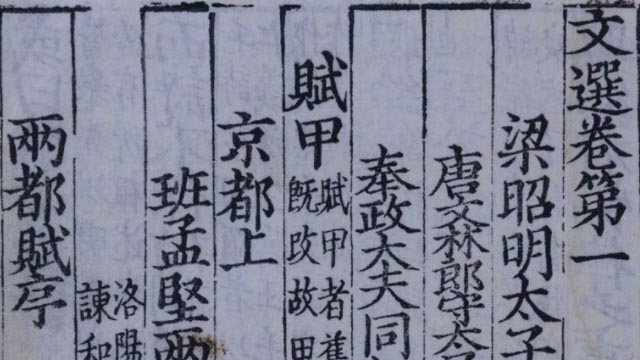 文選卷第一
梁昭明太子
唐文林郎守太子
奉政大夫同
賦甲 賦甲者舊
既改故甲
京都上
班孟堅兩
洛陽
諫和
兩都賦序